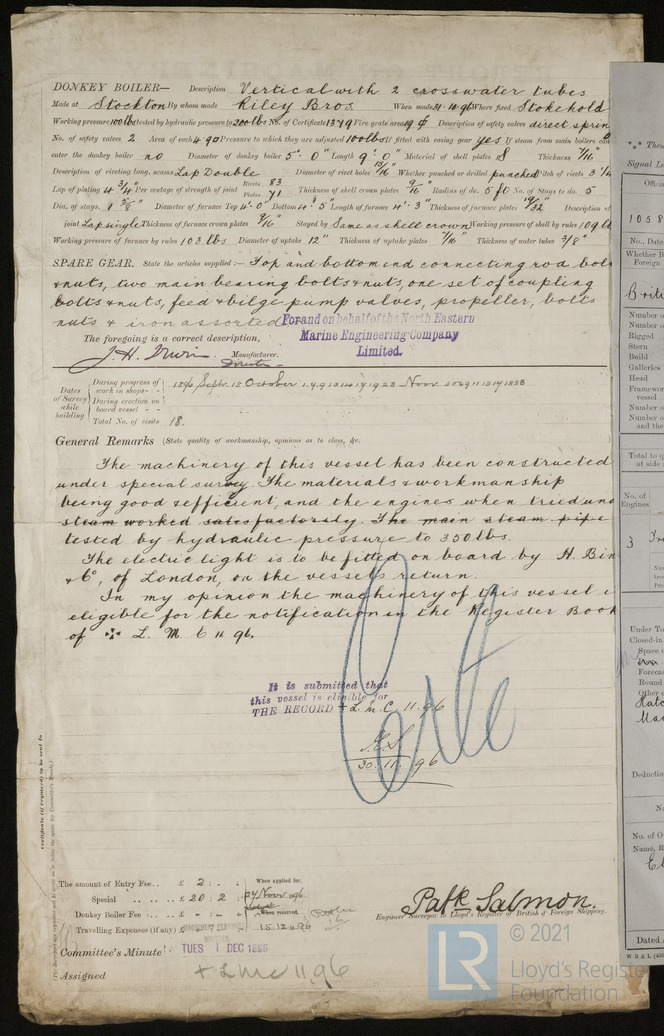 DONKEY BOILER— Description Vertical with 2 crosswater tubes
Made at Stockton By whom made Riley Bros. When made 31·10·96 Where fixed Stokehold
Working pressure 100lbs tested by hydraulic pressure to 200lbs No. of Certificate 1379 Fire grate area 19 Description of safety valves direct sprin
No. of safety valves 2 Area of each 4·90 Pressure to which they are adjusted 100lbs If fitted with easing gear yes If steam from main boilers can
enter the donkey boiler no Diameter of donkey boiler 5'·0" Length 9'·0" Material of shell plates S Thickness 7/16"
Description of riveting long. seams Lap Double Diameter of rivet holes 15/16" Whether punched or drilled punched Pitch of rivets 3¼
Lap of plating 4¾" Per centage of strength of joint Rivets 83 Plates 71 Thickness of shell crown plates 9/16" Radius of do. 5 ft No. of Stays to do. 5
Dia. of stays. Diameter of furnace Top 4'·0" Bottom 4'·5" Length of furnace 4'·3" Thickness of furnace plates 19/32" Description of
joint Lap single Thickness of furnace crown plates 9/16" Stayed by Same as shell crown Working pressure of shell by rules 109 lb
Working pressure of furnace by rules 103 lbs Diameter of uptake 12" Thickness of uptake plates 7/16" Thickness of water tubes 3/8"
SPARE GEAR. State the articles supplied:— Top and bottom end connecting rod bolt
& nuts, two main bearing bolts & nuts, one set of coupling
bolts & nuts, feed & bilge pump valves, propeller, bolts
nuts & iron assorted For and on behalf of the North Eastern
The foregoing is a correct description, Marine Engineering Company
J. H. Irwin Manufacturer. Limited.
Director
Dates of Survey while building
During progress of work in shops - - 1896 Septr. 15 October
During erection on board vessel - -
Total No. of visits 18.
General Remarks (State quality of workmanship, opinions as to class, &c.
The machinery of this vessel has been constructed
under special survey. The materials & workmanship
being good & efficient, and the engines when tried und
steam worked satisfactorily. The main steam pipe
tested by hydraulic pressure to 350 lbs.
The electric light is to be fitted on board by H. Bin
& Co, of London, on the vessels return.
In my opinion the machinery of this vessel i
eligible for the notification in the Register Book
of L. M. C 11 96.
It is submitted that
this vessel is eligible for
THE RECORD + L.M.C. 11.96
30.11.96
Certificate (if required) to be sent to
The amount of Entry Fee .. £ 2 : - : - When applied for,
Special .. .. .. £ 20 : 2 : 27 Novr 96
Donkey Boiler Fee .. £ - : - : - When received,
Travelling Expenses (if any) £ 15.12.96
Patk Salmon.
Engineer Surveyor to Lloyd's Register of British & Foreign Shipping.
Committee's Minute TUES 1 DEC 1896
Assigned + LMC 11,96
© 2021
LR Lloyd's Register
Foundation
Signal Le
Offici
1058
No., Date
Whether B
Foreign
Brit
Number o
Number o
Rigged
Stern
Build
Galleries
Head
Framewor
vessel
Number o
Number o
and the
Total to q
at side
No. of
Engines
3
Under To
Closed-in
Space
Foreca
Round
Other
Hatc
Deductio
No. of O
Name, R
Dated